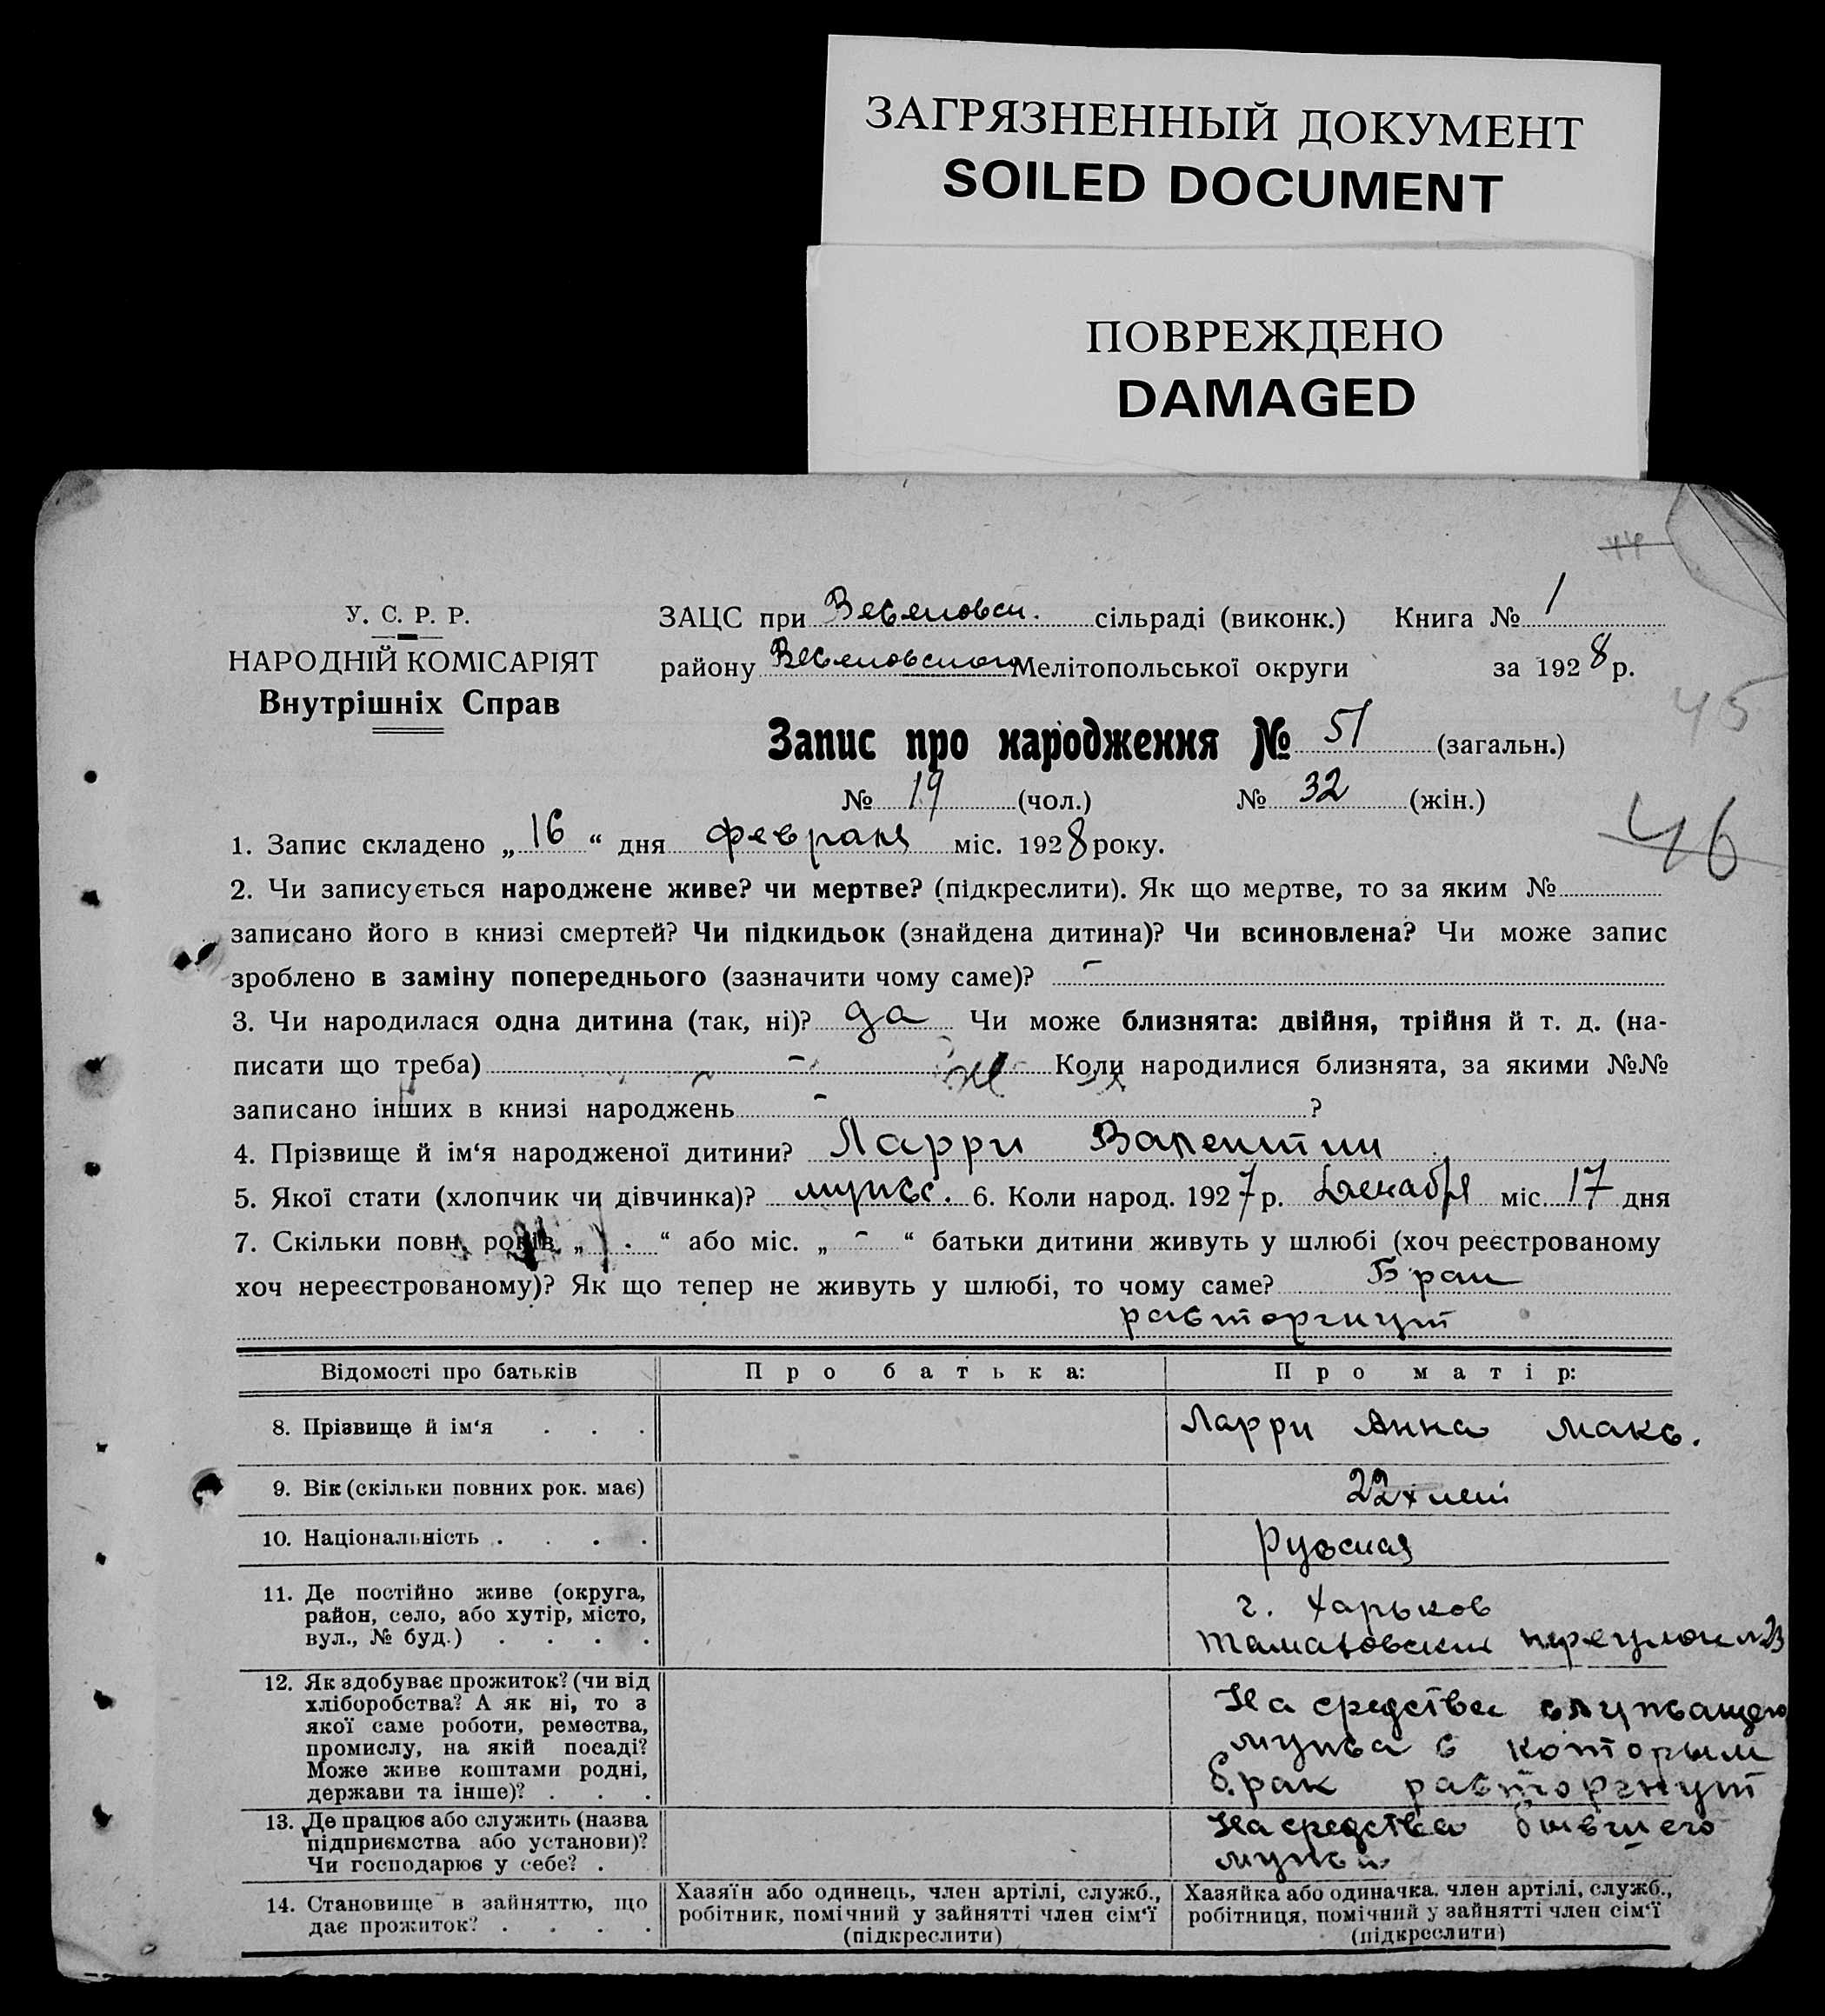 ЗАГРЯЗНЕННЫЙ ДОКУМЕНТ
SOILED DOCUMENT
ПОВРЕЖДЕНО
DAMAGED
44
У. С. Р. Р.
НАРОДНІЙ КОМІСАРІЯТ
Внутрішніх Справ
ЗАЦС при Веселовск. сільраді (виконк.) Книга № 1
району Веселовского Мелітопольської округи за 1928 р.
45
Запис про народження № 51 (загальн.)
№ 19 (чол.) № 32 (жін.)
46
1. Запис складено „16“ дня февраля міс. 1928 року.
2. Чи записується народжене живе? чи мертве? (підкреслити). Як що мертве, то за яким №
записано його в книзі смертей? Чи підкидьок (знайдена дитина)? Чи всиновлена? Чи може запис
зроблено в заміну попереднього (зазначити чому саме)? -
3. Чи народилася одна дитина (так, ні)? да Чи може близнята: двійня, трійня й т. д. (на-
писати що треба) - Коли народилися близнята, за якими №№
записано інших в книзі народжень - ?
4. Прізвище й ім‘я народженої дитини? Ларри Валентин
5. Якої стати (хлопчик чи дівчинка)? мужск. 6. Коли народ. 1927 р. Декабря міс. 17 дня
7. Скільки повн. років „ “ або міс. „ - “ батьки дитини живуть у шлюбі (хоч реєстрованому
хоч нереєстрованому)? Як що тепер не живуть у шлюбі, то чому саме? Брак
расторгнут
Відомості про батьків Про батька: Про матір:
8. Прізвище й ім‘я . . . Ларри Анна Макс.
9. Вік (скільки повних рок. має) 22х лет
10. Національність . . . . Русская
11. Де постійно живе (округа,
район, село, або хутір, місто,
вул., № буд.) . . . .
г. Харьков
переулок
12. Як здобуває прожиток? (чи від
хліборобства? А як ні, то з
якої саме роботи, ремества,
промислу, на якій посаді?
Може живе коштами родні,
держави та інше)? . . .
На средства служащего
мужа с которым
брак расторгнут
13. Де працює або служить (назва
підприємства або установи)?
Чи господарює у себе? .
На средства бывшего
мужа
14. Становище в зайняттю, що
дає прожиток? . . . .
Хазяїн або одинець, член артілі, служб.,
робітник, помічний у зайнятті член сім‘ї
(підкреслити)
Хазяйка або одиначка. член артілі, служб.,
робітниця, помічний у зайнятті член сім‘ї
(підкреслити)